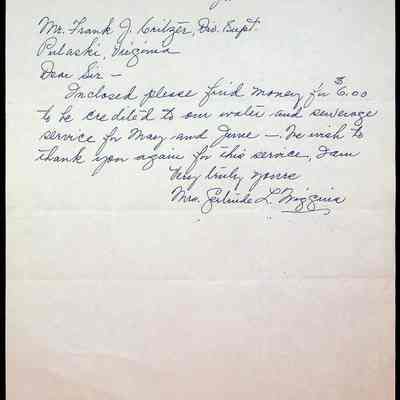 Mr. Frank J. Critzer, Div. Supt.
Pulaski, Virginia
Dear Sir —
Inclosed please find money for $6.00
to be credited to our water and sewerage
service for May and June —. We wish to
thank you again for this service, I am
Very truly yours
Mrs. Gertrude L. Wiggins